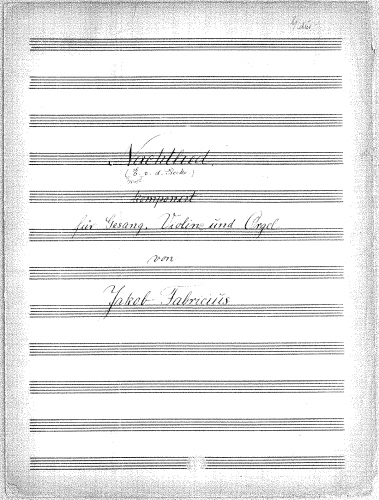 Nachtlied.
(E. v. d. Recke)
komponirt
für Gesang, Violine und Orgel
von
Jakob Fabricius